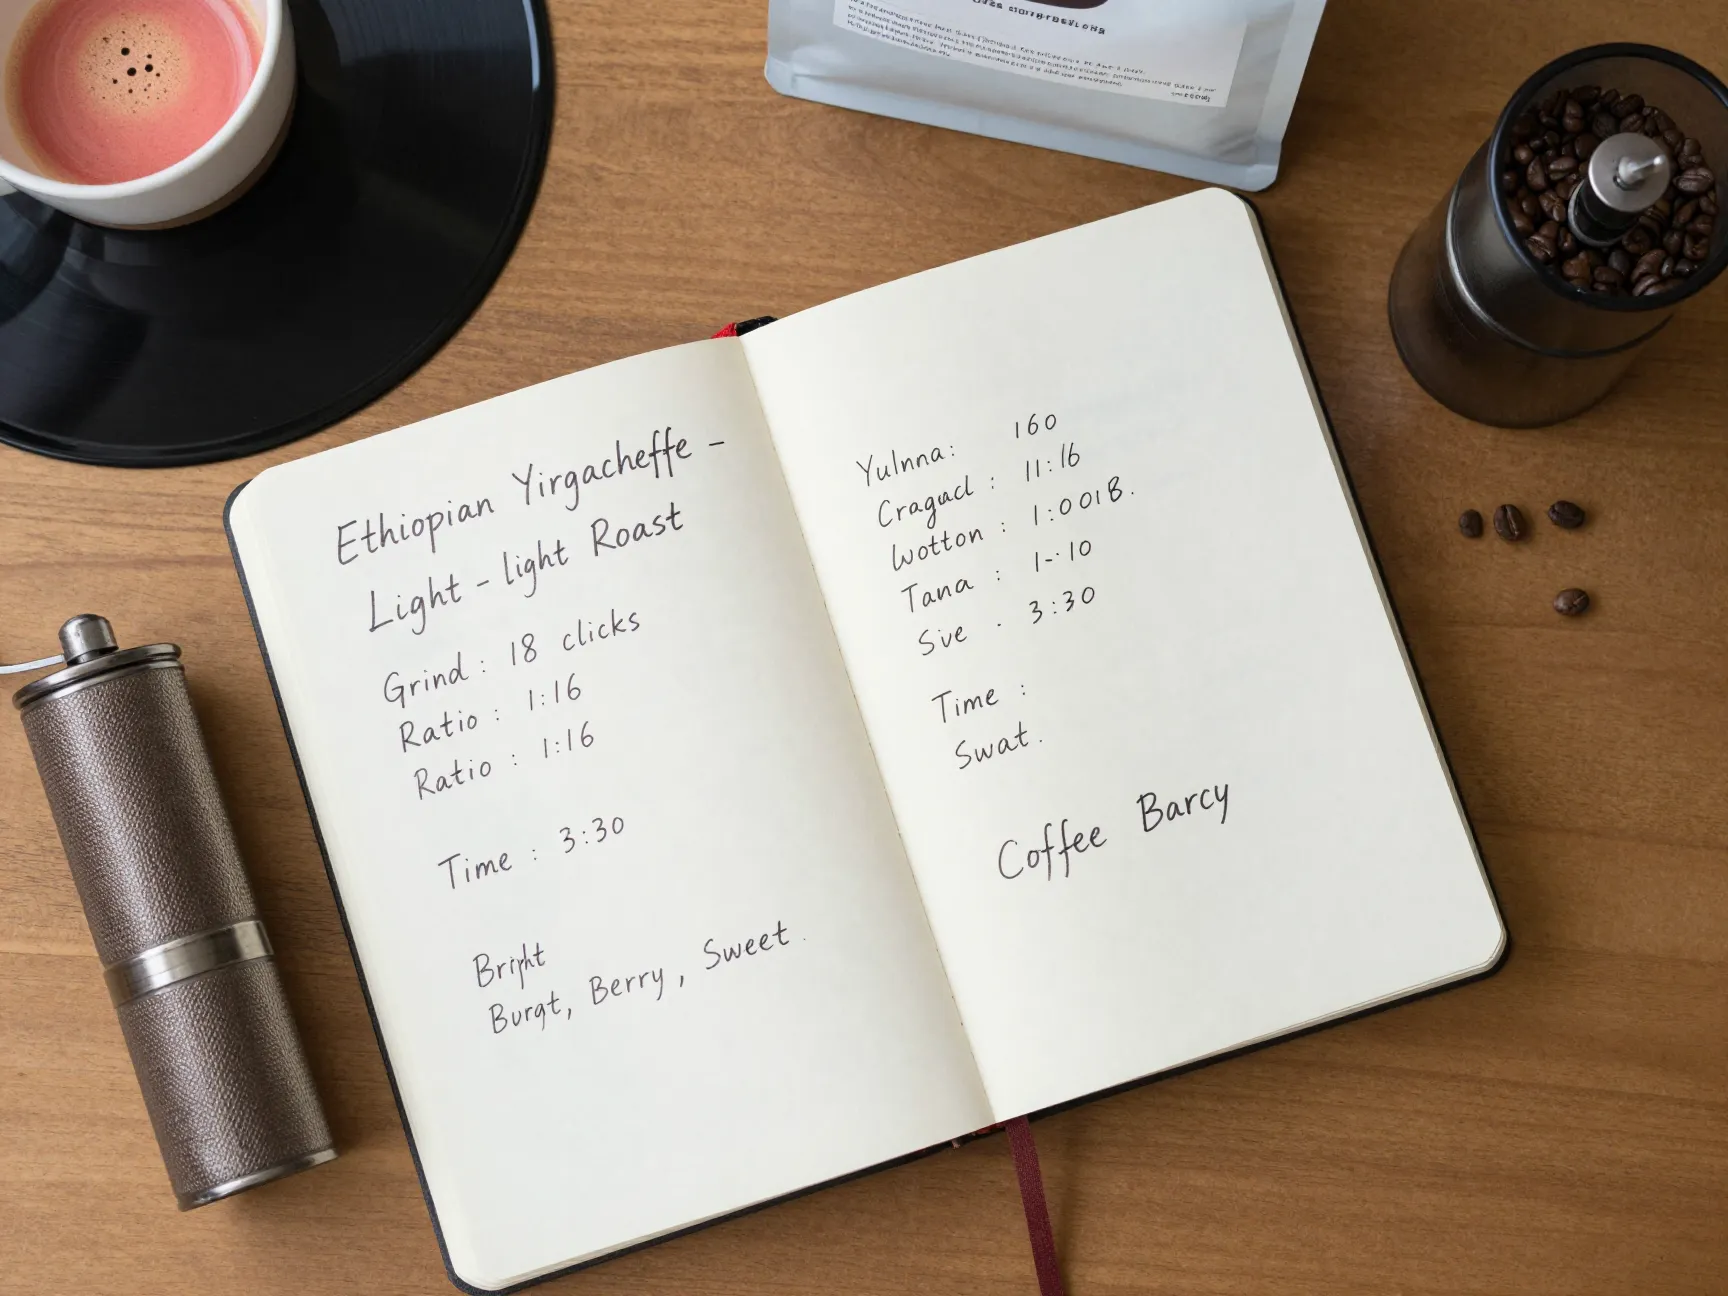 Ethiopian Yirgacheffe -
Light - light Roast
Grind : 18 clicks
Ratio : 1:16
Ratio : 1:16
Time : 3:30
Bright
Burgt, Berry, Sweet.
Yulnna: 160
Cragucl : 11:16
Wotton : 1:001B.
Tana : 1-·10
Sve . 3:30
Time :
Swat.
Coffee Barcy